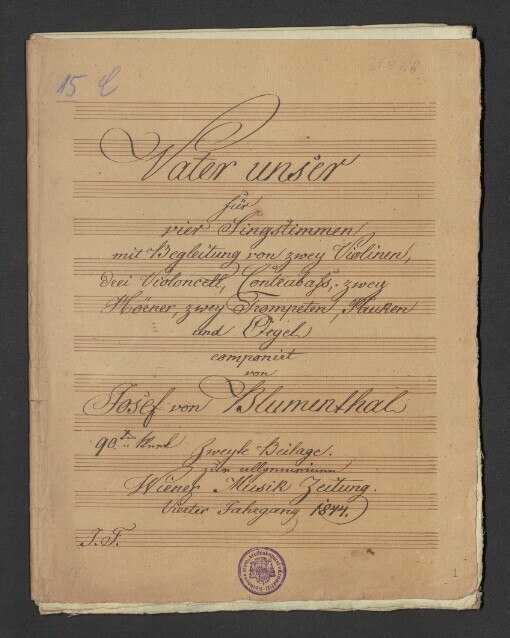 15 C
Vater unser
für
vier Singstimmen
mit Begleitung von zwey Violinen,
drei Violoncell, Contrabass, zwey
Hörner, zwey Trompeten, Pauken
und Orgel
componirt
von
Josef von Blumenthal
90. Werk
Zweyte Beilage.
zur allgemeinen
Wiener Musik Zeitung.
Vierter Jahrgang 1844.
J. F.
1